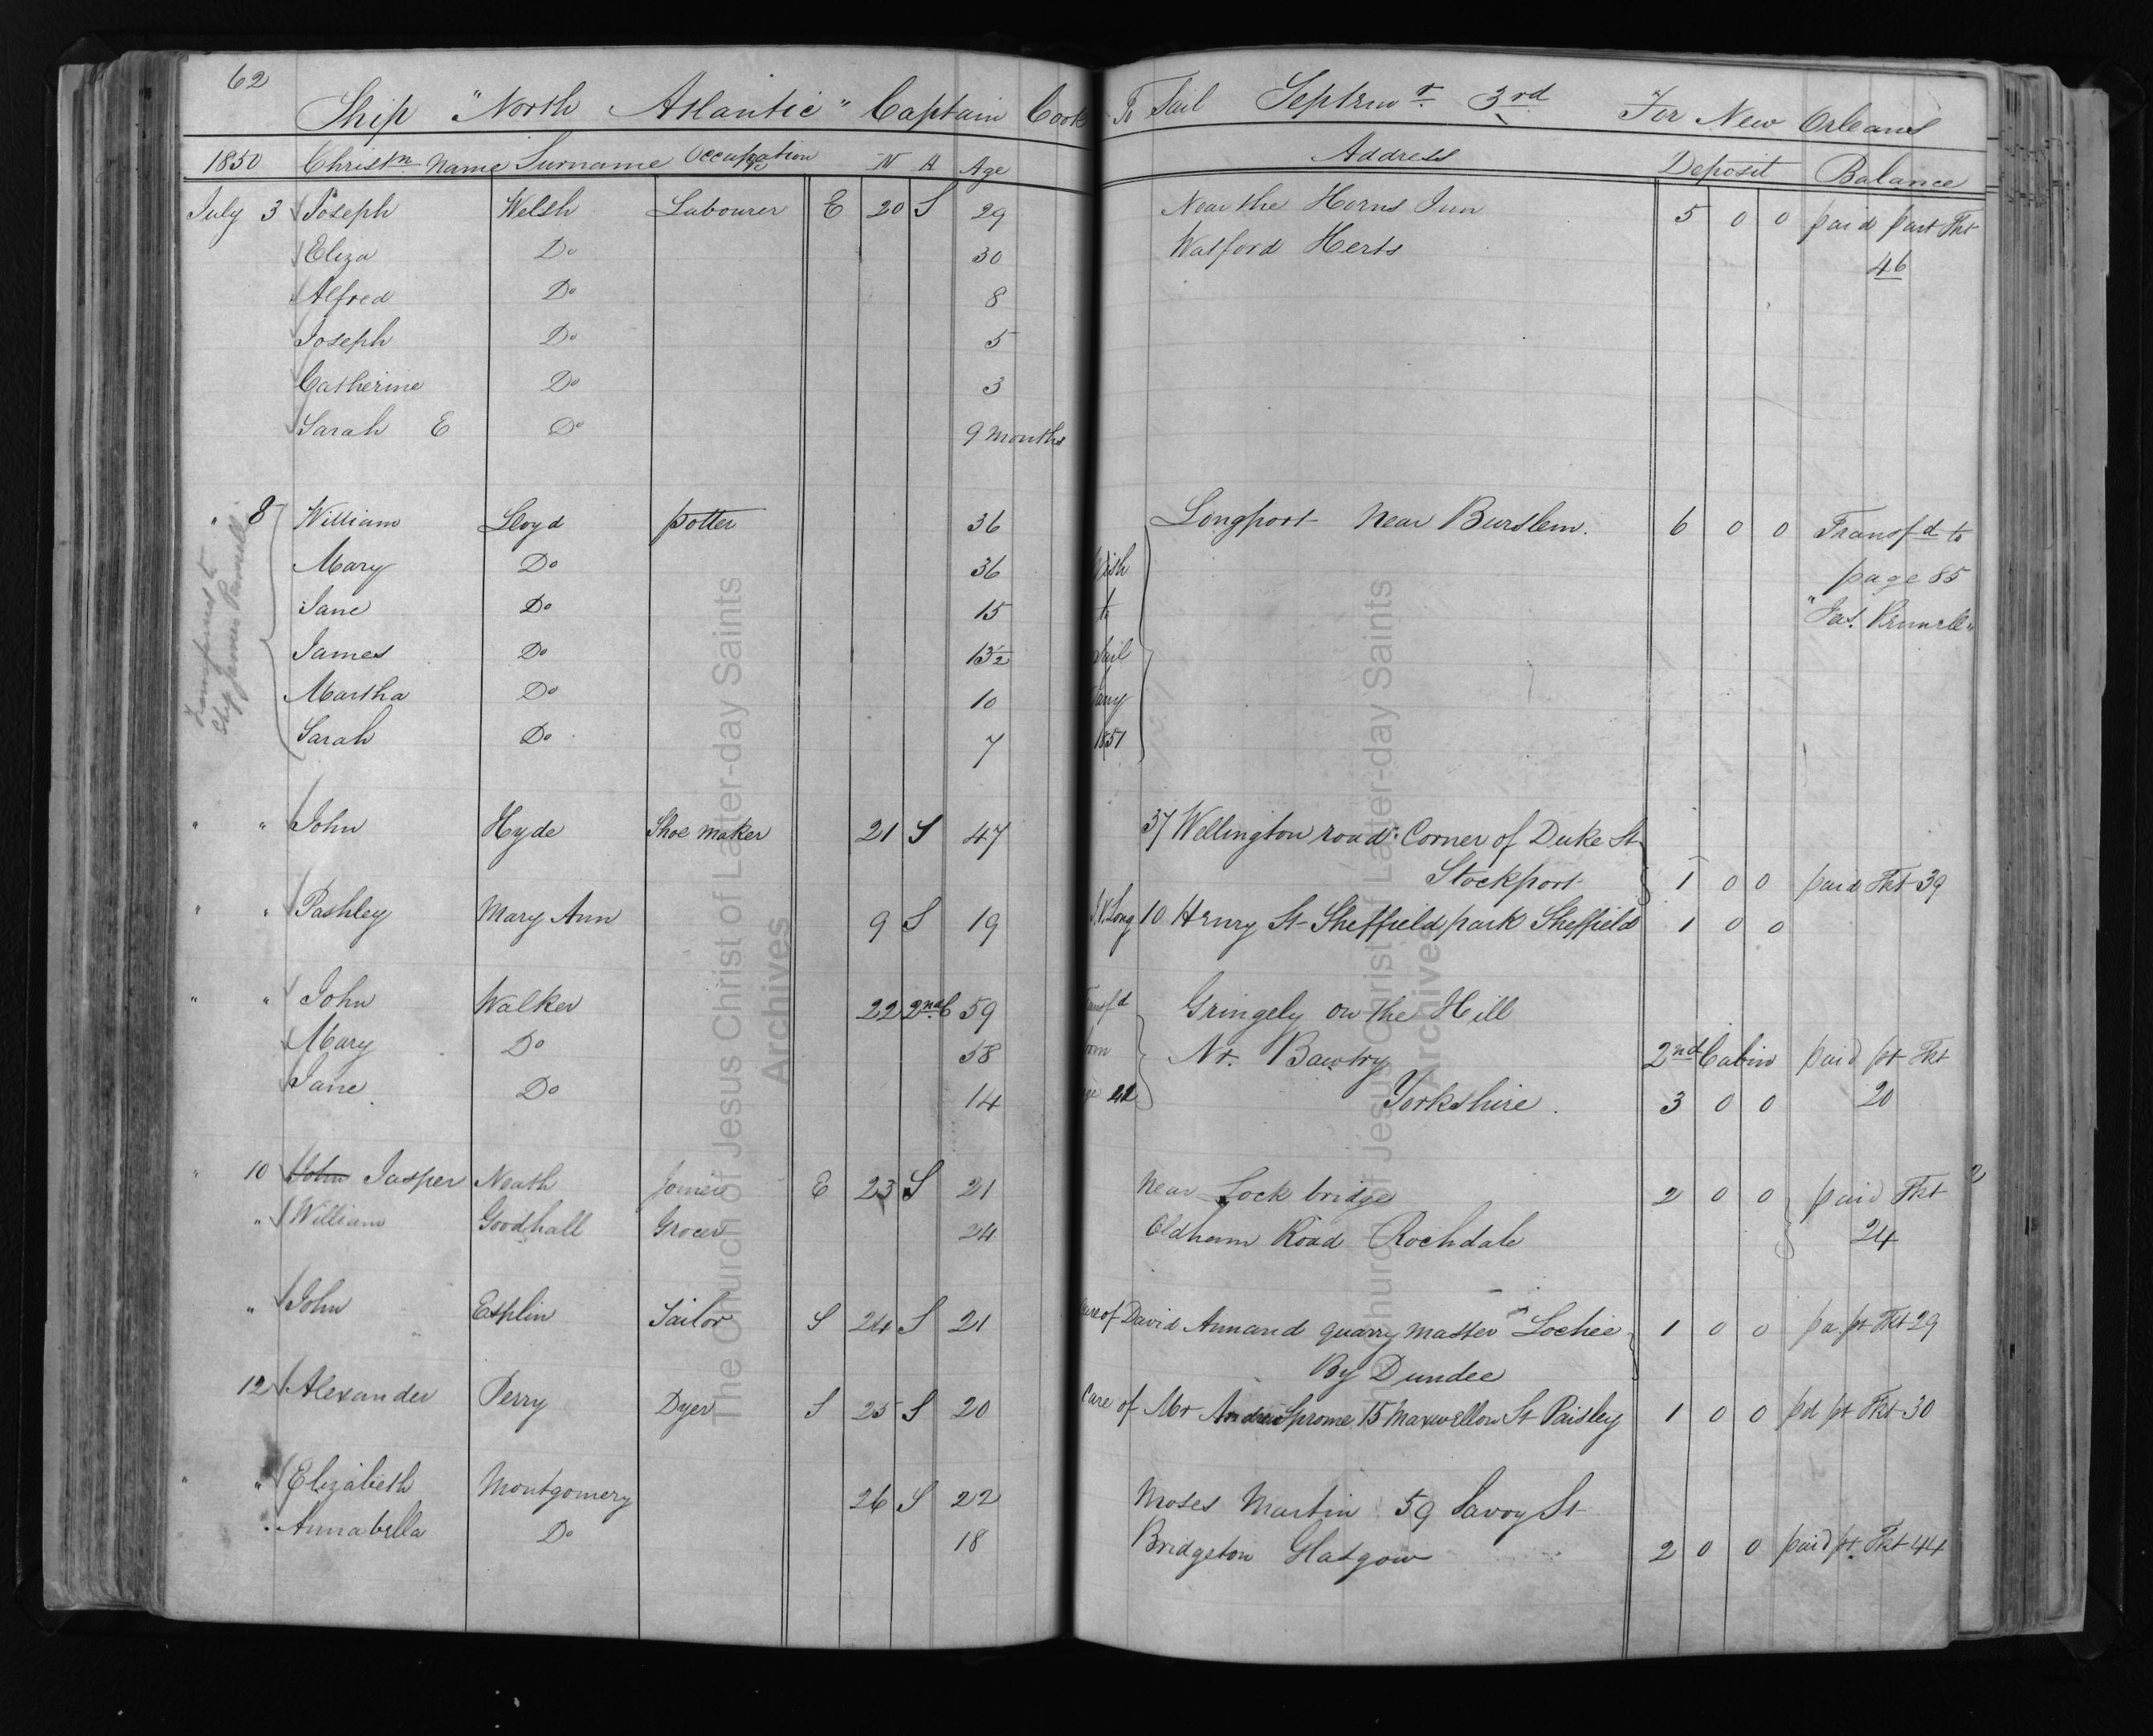 62
Ship "North Atlantic" Captain Cook To Sail Septemr 3rd For New Orleans
1850 Christn Name Surname Occupation N A Age Address Deposit Balance
July 3 Joseph Welsh Labourer E 20 S 29 Near the Horns Inn 5 0 0 paid part Tkt
Eliza Do 30 Watford Herts 46
Alfred Do 8
Joseph Do 5
Catherine Do 3
Sarah E Do 9 Months
" 8 William Lloyd potter 36 Longport Near Burslem. 6 0 0 Transfd to
Mary Do 36 Wish page 85
Jane Do 15 to "Jas. Pennell"
James Do 13½ Sail
Martha Do 10 Jany
Sarah Do 7 1851
Transferred to
Ship James Pennell
" " John Hyde Shoe maker 21 S 47 37 Wellington road: Corner of Duke St
Stockport 1 0 0 paid Tkt 39
" " Pashley Mary Ann 9 S 19 10 Henry St Sheffield park Sheffield 1 0 0
" " John Walker 22 2nd C 59 Transfd Gringely on the Hill
Mary Do 58 from Nr. Bawtry 2nd Cabin paid pt Tkt
Jane Do 14 Yorkshire. 3 0 0 20
" 10 John Jasper Neath Joiner E 23 S 21 Near Lock bridge 2 0 0 paid Tkt 2
" William Goodhall Grocer 24 Oldham Road Rochdale 24
" John Esplin Tailor S 24 S 21 Care of David Annand quarry master Lochee 1 0 0 pa. pt Tkt 29
By Dundee
12 Alexander Perry Dyer S 25 S 20 Care of Mr Andrew Sprome 15 Maxwellton St Paisley 1 0 0 pd pt Tkt 30
" " Elizabeth Montgomery 26 S 22 Moses Martin 59 Savoy St
Annabella Do 18 Bridgeton Glasgow 2 0 0 paid pt. Tkt 44
The Church of Jesus Christ of Latter-day Saints
Archives
The Church of Jesus Christ of Latter-day Saints
Archives